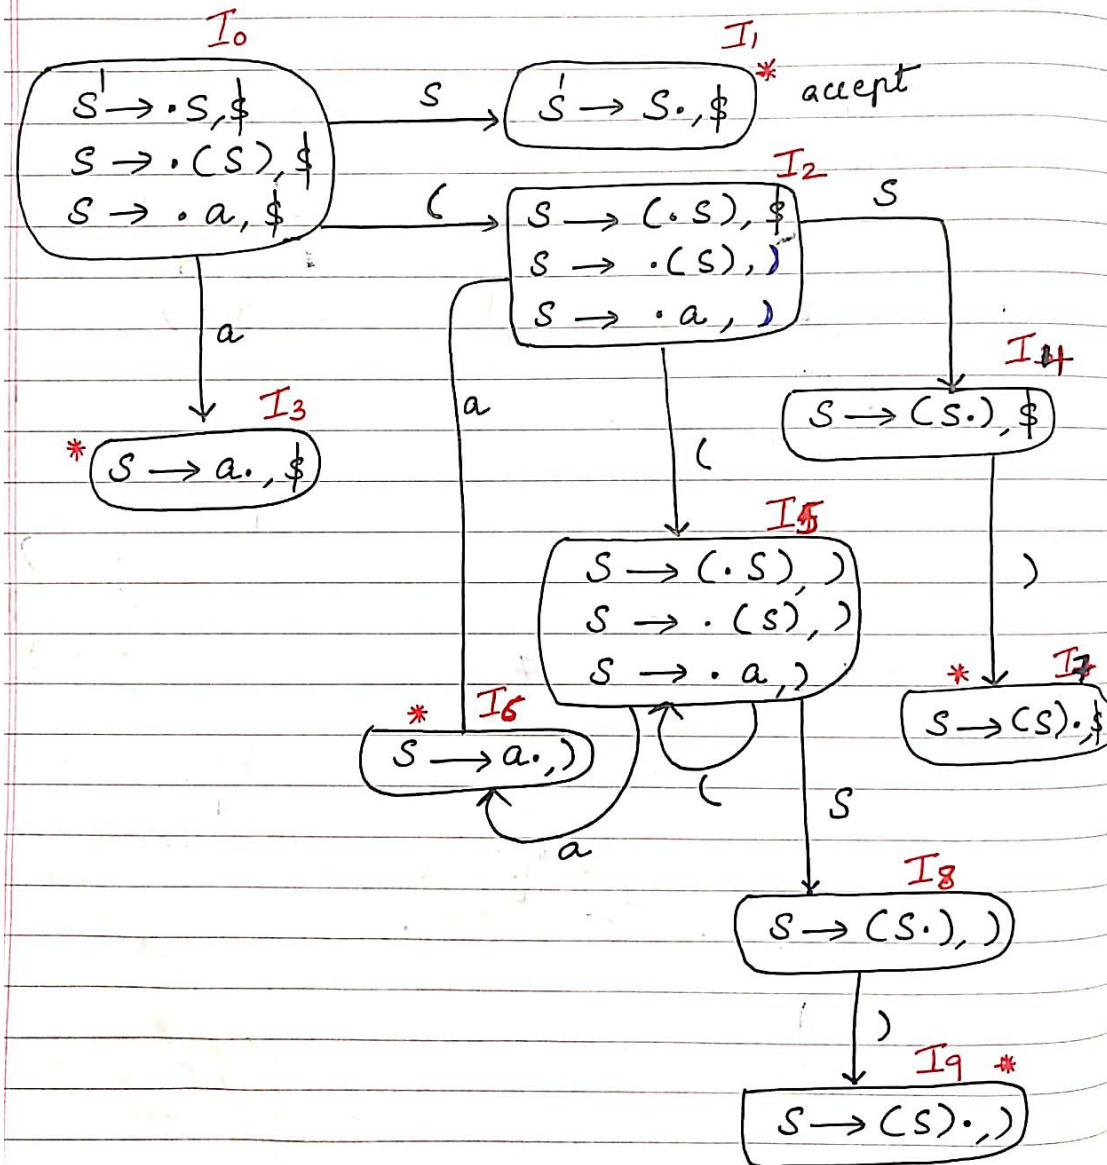 I0
S' → ·S,$
S → ·(S),$
S → ·a,$
S
I1
S' → S·,$
* accept
(
I2
S → (·S),$
S → ·(S),)
S → ·a,)
S
a
I3
* S → a·,$
a
(
I4
S → (S·),$
)
I5
S → (·S),)
S → ·(S),)
S → ·a,)
* I7
S → (S)·,$
* I6
S → a·,)
(
a
S
I8
S → (S·),)
)
I9 *
S → (S)·,)